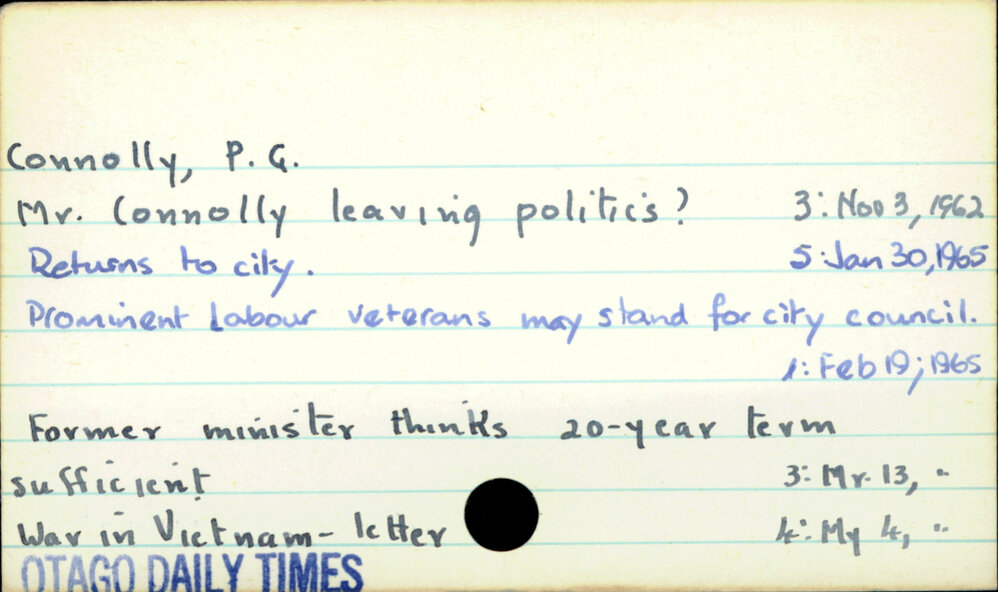 Connolly, P. G.
Mr. Connolly leaving politics? 3: Nov 3, 1962
Returns to city. 5: Jan 30, 1965
Prominent Labour veterans may stand for city council.
1: Feb 19; 1965
Former minister thinks 20-year term
sufficient 3: Mr. 13, "
War in Vietnam - letter 4: My 4, "
OTAGO DAILY TIMES